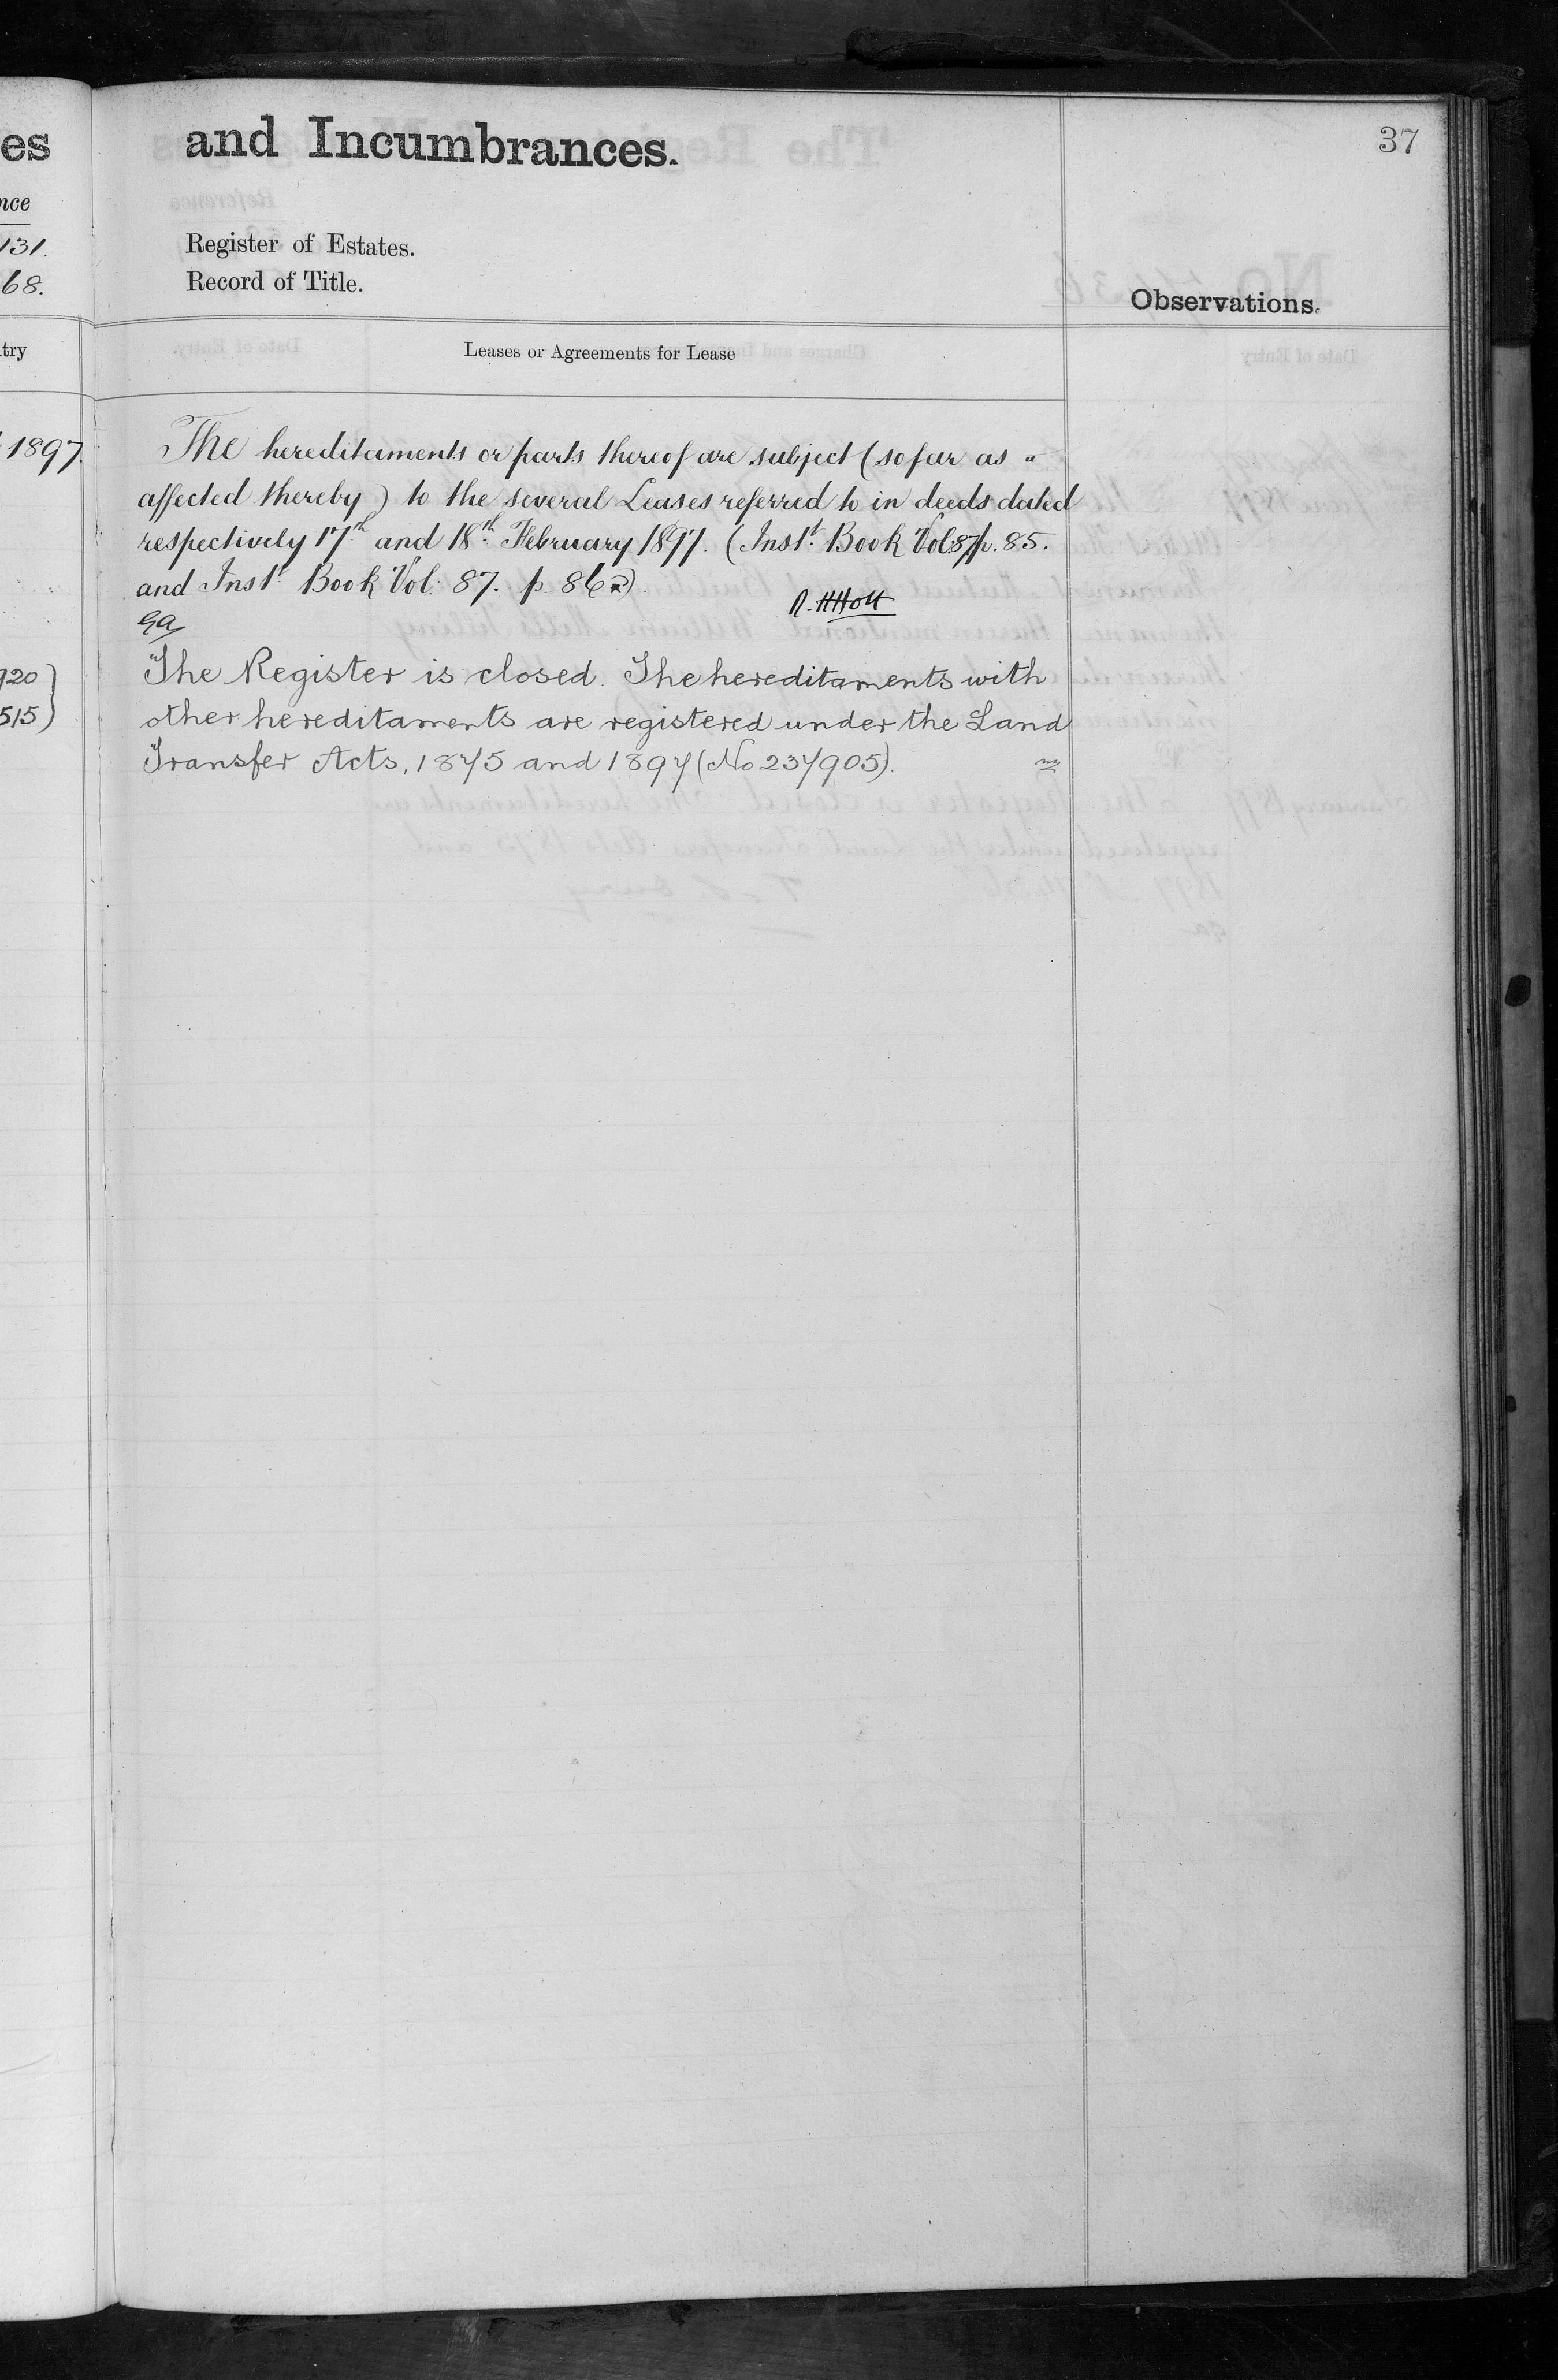 es
nce
131.
68.
try
1897.
920
515
and Incumbrances.
37
Register of Estates.
Record of Title.
Observations.
Leases or Agreements for Lease
The hereditaments or parts thereof are subject (so far as "
affected thereby) to the several Leases referred to in deeds dated
respectively 17th and 18th February 1897. (Inst. Book Vol. 87 p. 85.
and Inst. Book Vol. 87. p. 86)
R. H Holt
The Register is closed. The hereditaments with
other hereditaments are registered under the Land
Transfer Acts, 1875 and 1897 (No 237905).